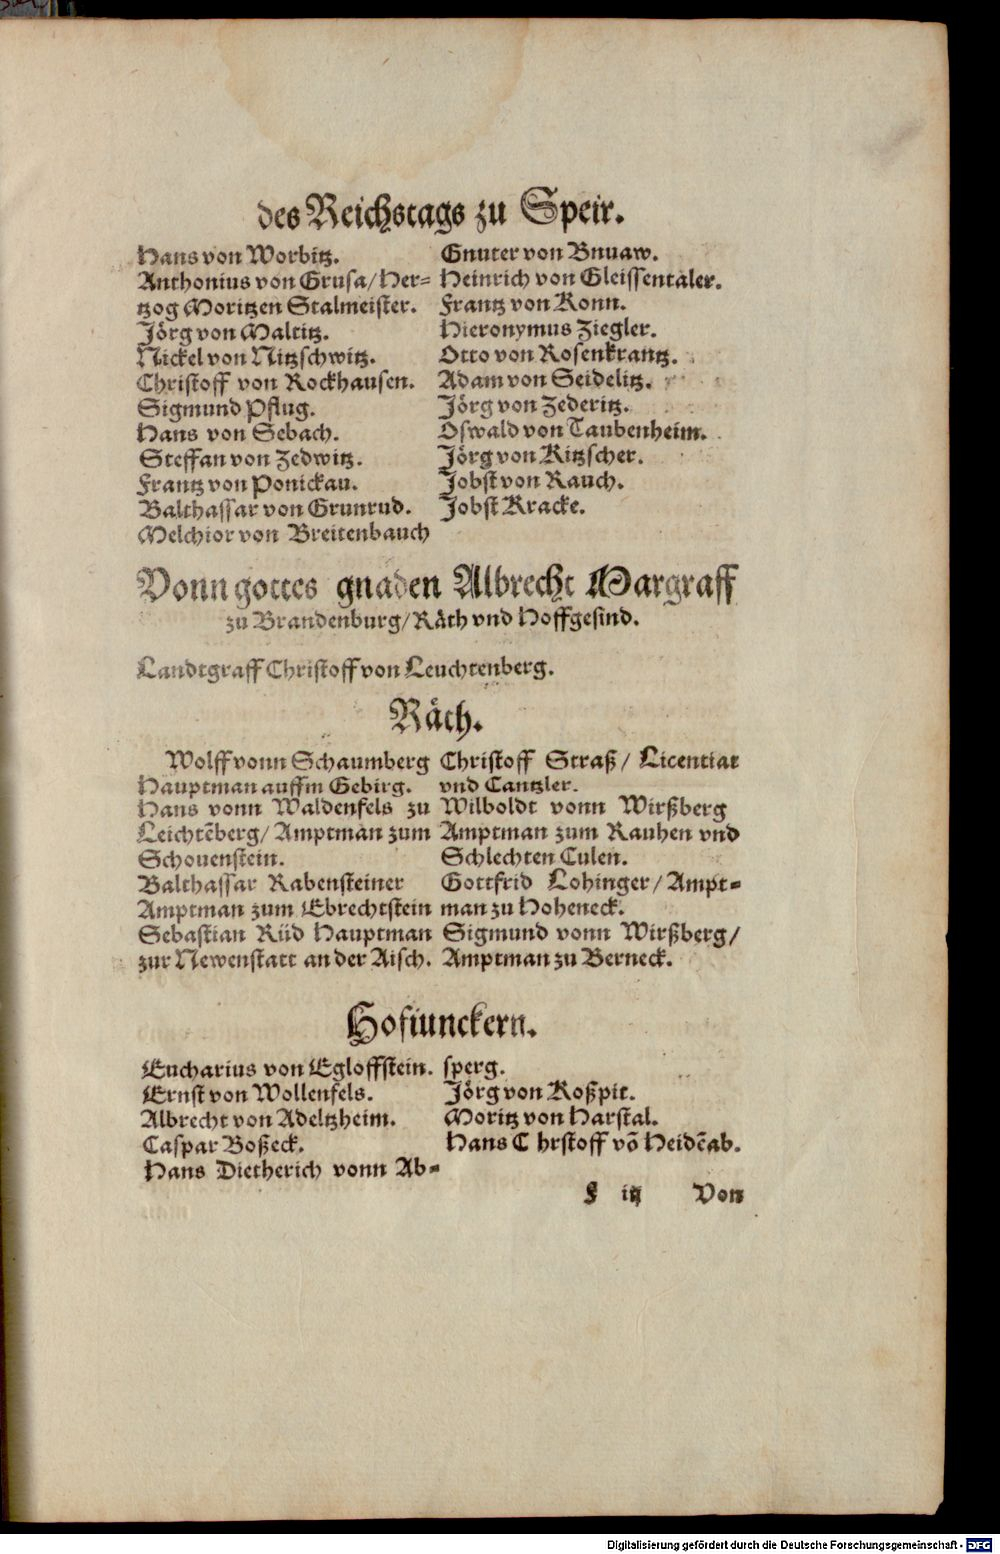 des Reichstags zu Speir.
Hans von Worbitz.
Anthonius von Grusa/Her-
tzog Moritzen Stalmeister.
Jörg von Maltitz.
Nickel von Nitzschwitz.
Christoff von Rockhausen.
Sigmund Pflug.
Hans von Sebach.
Steffan von Zedwitz.
Frantz von Ponickau.
Balthassar von Grunrud.
Melchior von Breitenbauch
Gnuter von Bnuaw.
Heinrich von Gleissentaler.
Frantz von Konn.
Hieronymus Ziegler.
Otto von Rosenkrantz.
Adam von Seidelitz.
Jörg von Zederitz.
Oswald von Taubenheim.
Jörg von Kitzscher.
Jobst von Rauch.
Jobst Kracke.
Vonn gottes gnaden Albrecht Margraff
zu Brandenburg/Räth vnd Hoffgesind.
Landtgraff Christoff von Leuchtenberg.
Räth.
Wolff vonn Schaumberg
Hauptman auffm Gebirg.
Hans vonn Waldenfels zu
Leichtēberg/Amptman zum
Schouenstein.
Balthassar Rabensteiner
Amptman zum Ebrechtstein
Sebastian Rüd Hauptman
zur Newenstatt an der Aisch.
Christoff Straß/Licentiat
vnd Cantzler.
Wilboldt vonn Wirßberg
Amptman zum Rauhen vnd
Schlechten Culen.
Gottfrid Lohinger/Ampt-
man zu Hoheneck.
Sigmund vonn Wirßberg/
Amptman zu Berneck.
Hofiunckern.
Eucharius von Egloffstein.
Ernst von Wollenfels.
Albrecht von Adeltzheim.
Caspar Boßeck.
Hans Dietherich vonn Ab-
sperg.
Jörg von Roßpit.
Moritz von Harstal.
Hans C hrstoff vō Heidēab.
F iij Von
Digitalisierung gefördert durch die Deutsche Forschungsgemeinschaft - DFG